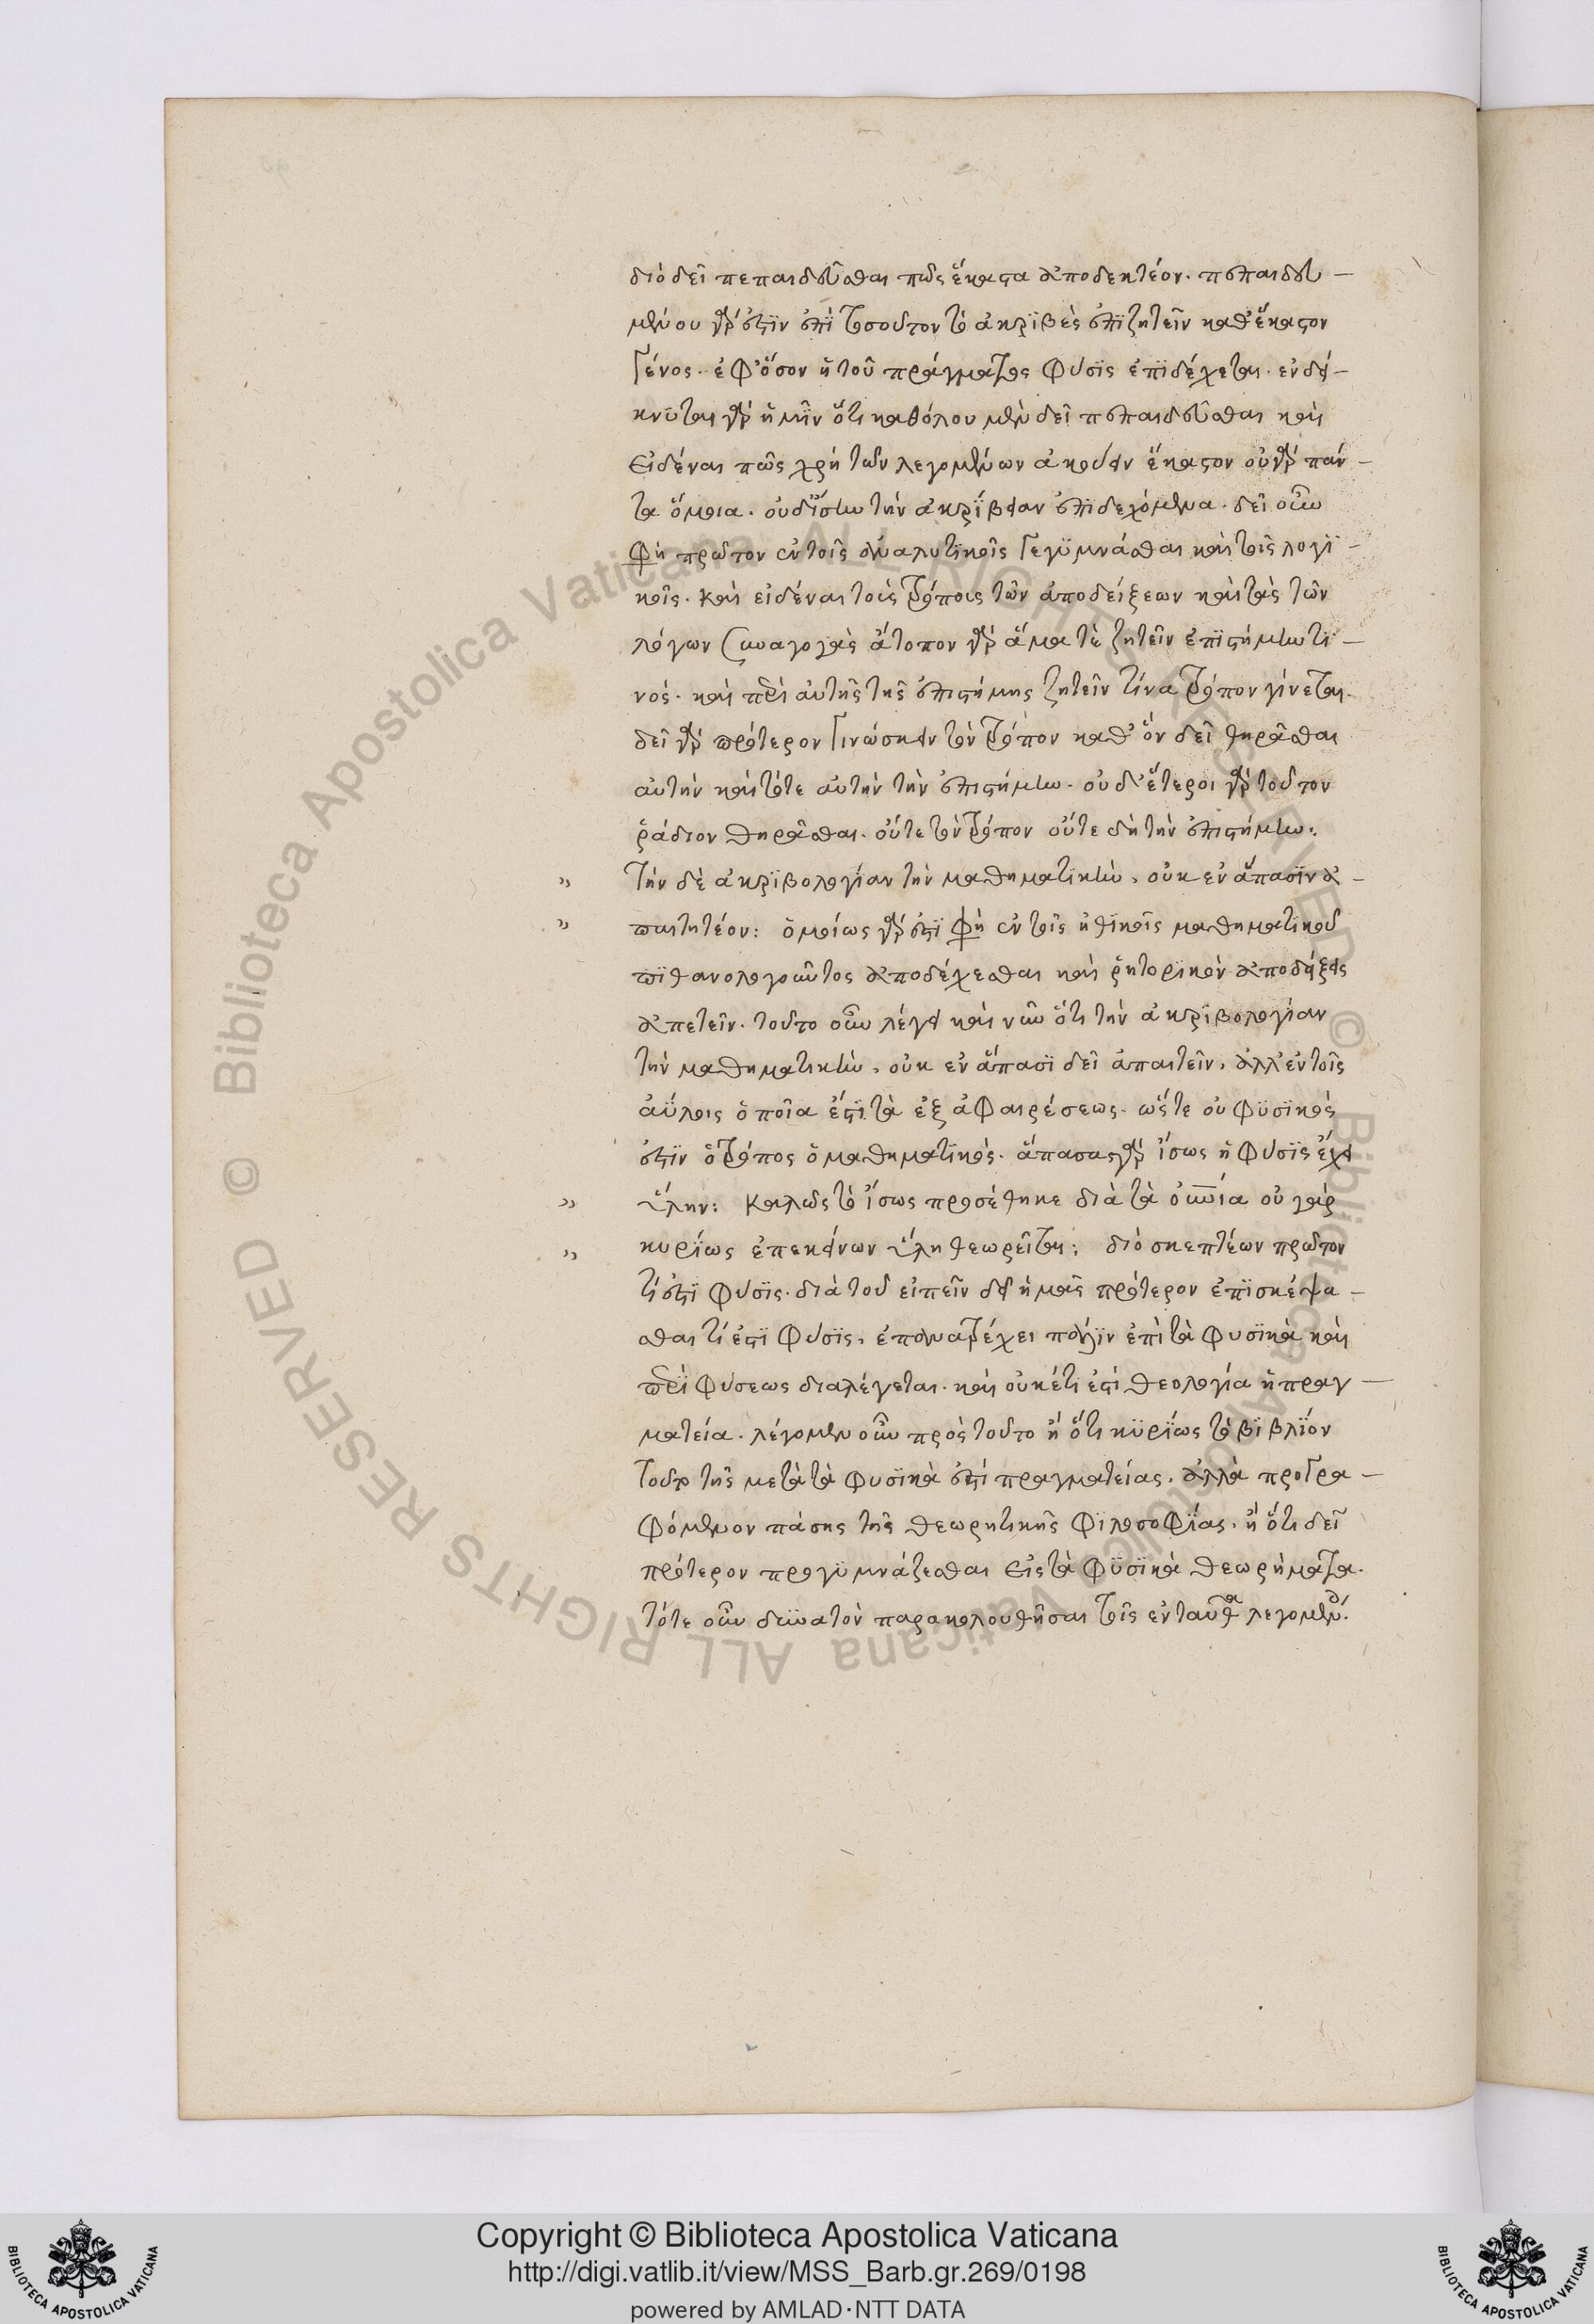 διὸ δεῖ πεπαιδεῦσθαι πῶς ἕκαστα ἀποδεκτέον. πεπαιδευ–
μένου γάρ ἐστϊν ἐπῒ τοσοῦτον τὸ ἀκρϊβὲς ἐπϊζητεῖν καθ' ἕκαστον
γένος. ἐφ' ὅσον ἡ τοῦ πράγματος φύσϊς ἐπϊδέχεται. ἐνδεί–
κνυται γὰρ ἡμῖν ὅτι καθόλου μὲν δεῖ πεπαιδεῦσθαι καὶ
εἰδέναι πῶς χρὴ τῶν λεγομένων ἀκούειν ἕκαστον οὐ γὰρ πάν–
τα ὅμοια. οὐδ' ἴσην τὴν ἀκρΐβειαν ἐπιδεχόμενα. δεῖ οὖν
φὴ πρῶτον ἐν τοῖς ἀναλυτϊκοῖς γεγϋμνάσθαι καὶ τοῖς λογϊ–
κοῖς. καὶ εἰδέναι τοὺς τρόπους τῶν ἀποδείξεων καὶ τὰς τῶν
λόγων συναγογὰς ἄτοπον γὰρ ἅμα τὲ ζητεῖν ἐπϊστήμην τϊ–
νός. καὶ περὶ αὐτῆς τῆς ἐπιστήμης ζητεῖν τίνα τρόπον γίνεται.
δεῖ γὰρ πρότερον γινώσκειν τὸν τρόπον καθ' ὃν δεῖ θηρᾶσθαι
αὐτὴν καὶ τότε αὐτὴν τὴν ἐπιστήμην. οὐδ' ἕτεροι γὰρ τοῦτον
ῥάδιον θηρᾶσθαι. οὔτε τὸν τρόπον οὔτε δὴ τὴν ἐπιστήμην:
" Τὴν δὲ ἀκρϊβολογίαν τὴν μαθηματϊκὴν, οὐκ ἐν ἅπασϊν ἀ–
" παιτητέον: ὁμοίως γάρ ἐστϊ φὴ ἐν τοῖς ἠθϊκοῖς μαθηματικοῦ
πϊθανολογοῦντος ἀποδέχεσθαι καὶ ῥητορϊκὸν ἀποδείξεις
ἀπετεῖν. τοῦτο οὖν λέγει καὶ νῦν ὅτι τὴν ἀκρϊβολογίαν
τὴν μαθηματικὴν, οὐκ ἐν ἅπασϊ δεῖ ἀπαιτεῖν, ἀλλ' ἐν τοῖς
ἀΰλοις ὁποῖα ἔστϊ τὰ ἐξ ἀφαιρέσεως. ὥστε οὐ φϋσϊκός
ἐστϊν ὁ τρόπος ὁ μαθηματϊκός. ἅπασα γὰρ ἴσως ἡ φύσϊς ἔχει
" ὕλην: Καλῶς τὸ ἴσως προσέθηκε διὰ τὰ οὐράνια οὐ γὰρ
" κυρΐως ἐπ' ἐκείνων ὕλη θεωρεῖται: διὸ σκεπτέων πρῶτον
τί ἐστϊ φύσϊς. διὰ τοῦ εἰπεῖν δεῖ ἡμᾶς πρότερον ἐπϊσκέψα–
σθαι τί ἐστϊ φύσϊς, ἐπανατρέχει πάλϊν ἐπὶ τὰ φυσϊκὰ καὶ
περῒ φύσεως διαλέγεται. καὶ οὐκέτι ἐστὶ θεολογία ἡ πραγ–
ματεία. λέγομεν οὖν πρὸς τοῦτο ἢ ὅτι κϋρΐως τὸ βϊβλΐον
τοῦτο τῆς μετὰ τὰ φυσϊκὰ ἐστὶ πραγματείας. ἀλλὰ προγρα–
φόμενον πάσης τῆς θεωρητικῆς φϊλοσοφΐας. ἢ ὅτι δεῖ
πρότερον προγϋμνάζεσθαι εἰς τὰ φϋσϊκὰ θεωρήματα.
τότε οὖν δϋνατὸν παρακολουθῆσαι τοῖς ἐνταῦθα λεγομέν.
Copyright © Biblioteca Apostolica Vaticana
http://digi.vatlib.it/view/MSS_Barb.gr.269/0198
powered by AMLAD·NTT DATA
© Biblioteca Apostolica Vaticana ALL RIGHTS RESERVED
© Biblioteca Apostolica Vaticana ALL RIGHTS RESERVED
BIBLIOTECA APOSTOLICA VATICANA
BIBLIOTECA APOSTOLICA VATICANA